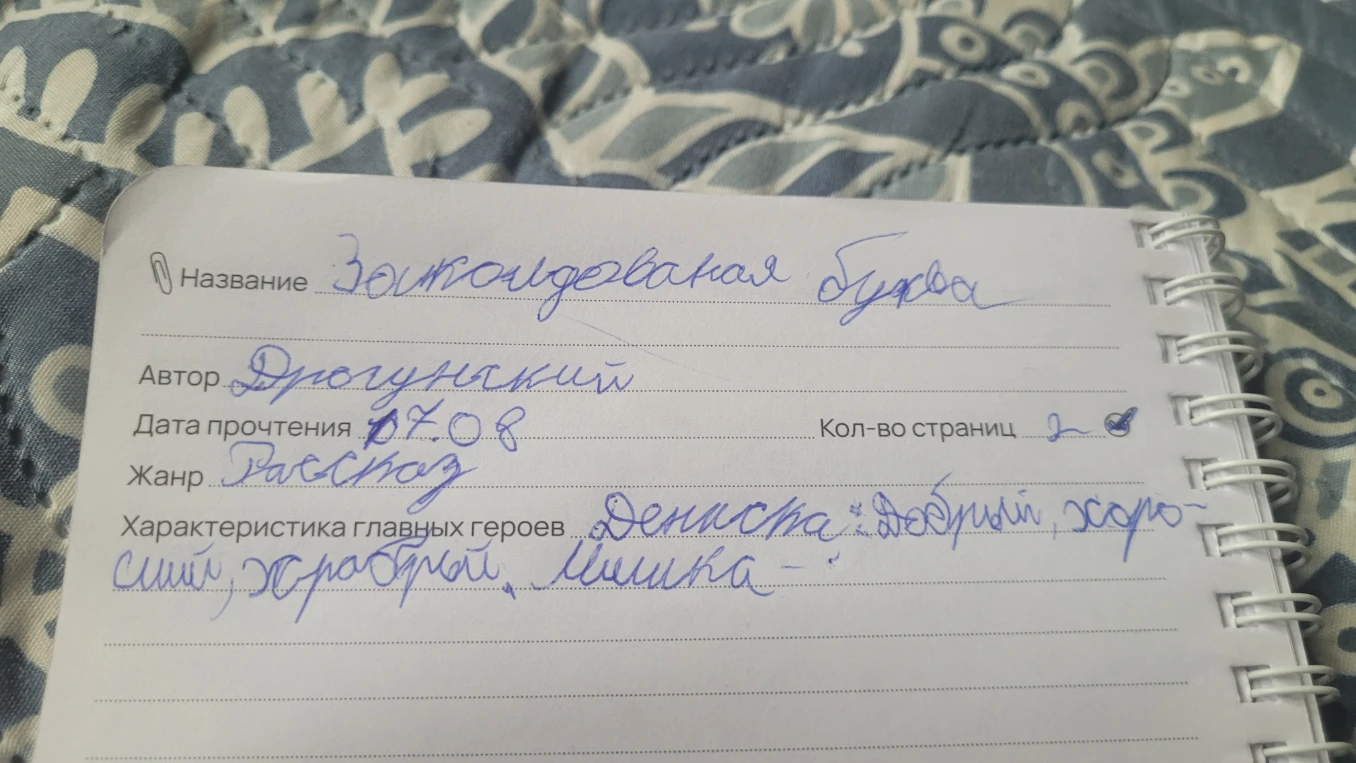 Название Закалдованая буква
Автор Драгунский
Дата прочтения 07.08 Кол-во страниц 2
Жанр Рассказ
Характеристика главных героев Дениска: Добрый, хоро-
ший, храбрый. Мишка -